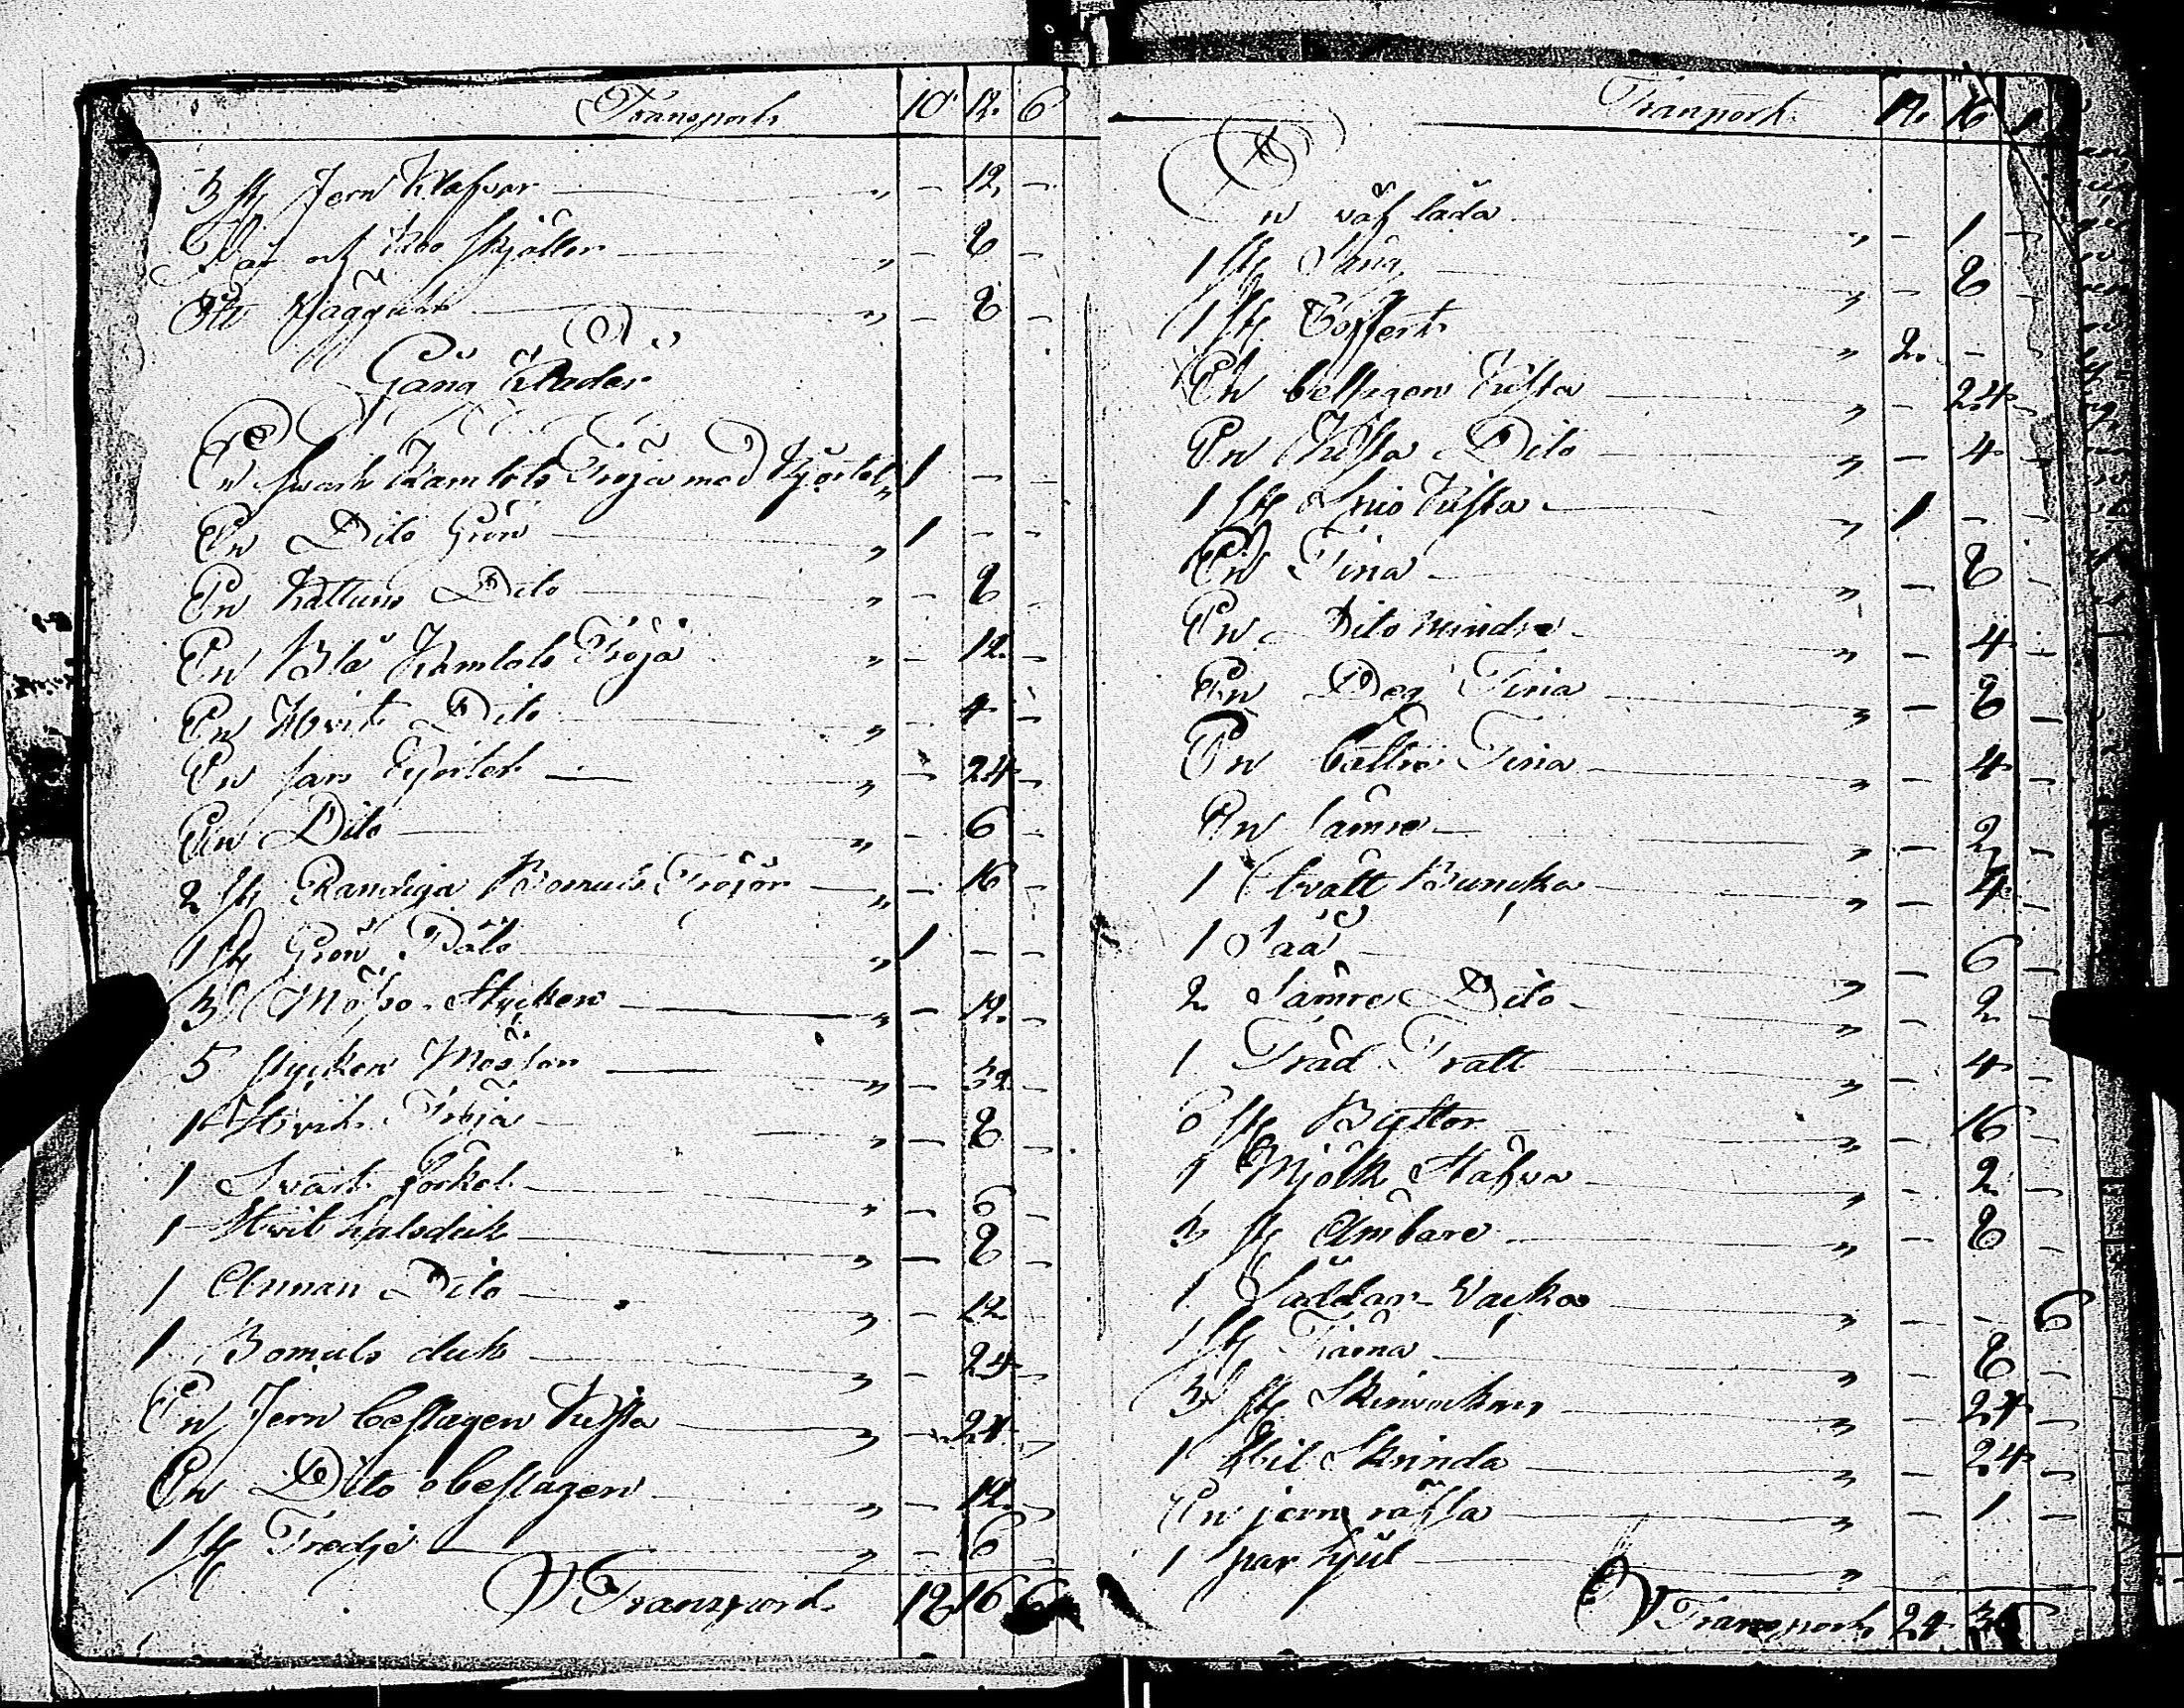 Transport 10 12 6
3 st Jern Klafvar " - 12 -
Får och Koo skjällor " - 8 -
Ett Vägguhr " - 8 -
Gång Kläder
En svart Kamlots Tröja med Kjortel " 1 - -
En Dito Grön " 1 - -
En Kattuns Dito " - 8 -
En Blå Kamlots Tröja " - 12 -
En Hvit Dito " - 4 -
En Kjortel " - 24 -
En Dito " - 6 -
2 st Randiga Bomuls Tröjor " - 16 -
1 st Grön Dito " 1 - -
3 Mösso Stycken " - 12 -
5 stycken Mössor " - 32 -
1 Hvit Tröja " - 8 -
1 Svart förkel " - 6 -
1 Hvit halsduk " - 8 -
1 Annan Dito " - 12 -
1 Bomuls duk " - 24 -
En Jern beslagen Kista " - 24 -
En Dito obeslagen " - 12 -
1 st Tredje " - 6 -
Transport 16 6
Tranport 16
En väf lada " - 1 -
1 st Säng " - 8 -
1 st Coffert " 2 - -
En beslagen Kista " - 24 -
En Kista Dito " - 4 -
1 st Kista " 1 - -
En Tina " - 8 -
En Dito mindre " - 4 -
En Deg Tina " - 8 -
En bättre Tina " - 4 -
En sämre " - 2 -
1 tvätt Buncka " - 4 -
1 Såå " - 6 -
2 Sämre Dito " - 2 -
1 Träd Tratt " - 4 -
6 st Byttor " - 16 -
1 Mjölk Stäfva " - 2 -
3 st Ämbare " - 8 -
1 " - - 6
1 st Tiärna " - 8 -
3 st " - 24 -
1 Skrinda " - 24 -
En jern räfsa " - 1 -
1 par hjul "
Transport 24